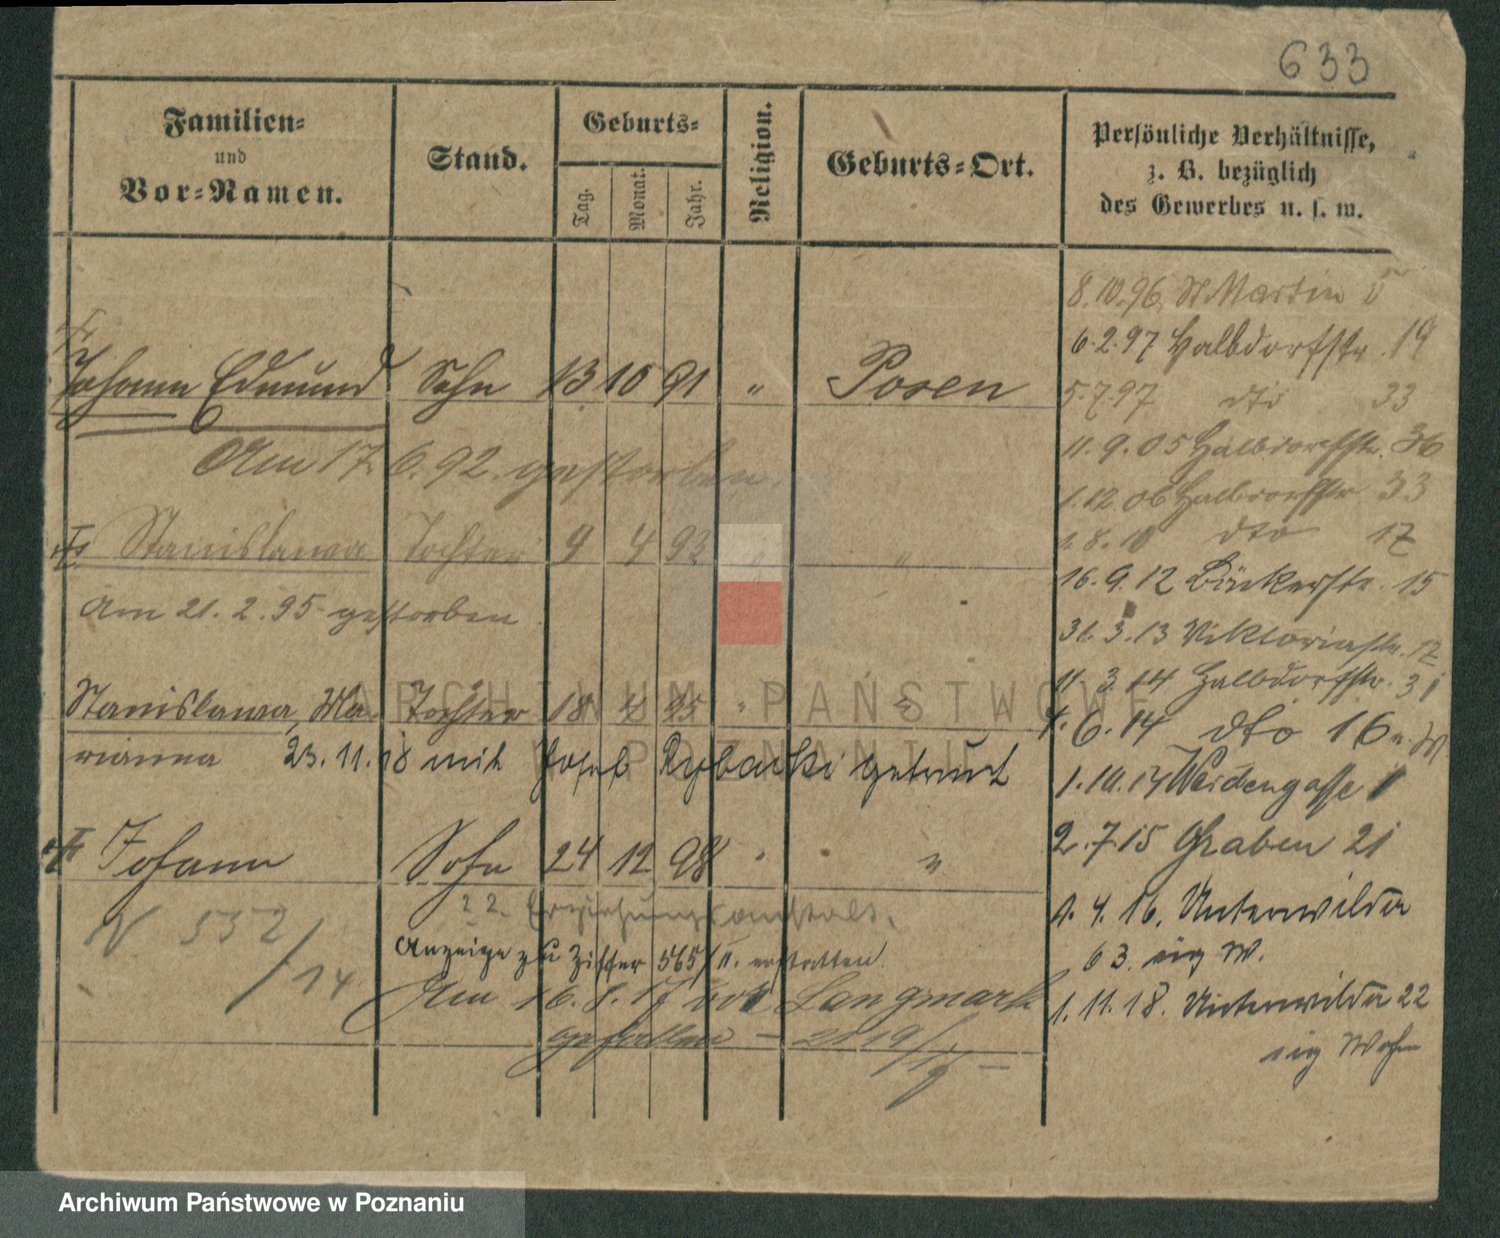 633
Familien=
und
Vor=Namen.
Stand.
Geburts=
Tag.
Monat.
Jahr.
Religion.
Geburts=Ort.
Persönliche Verhältnisse,
z. B. bezüglich
des Gewerbes u. s. w.
8.10.96. St Martin
6.2.97 Halbdorfstr. 19
Johann Edmund Sohn 13 10 91 " Posen
5.7.97 dto 33
Am 17. 6. 92. gestorben.
11.9.05 Halbdorfstr. 36
1.12.06 Halbdorfstr 33
Stanislawa Tochter 9 4 93 " "
1.8.10 dto 17
16.9.12 Bäckerstr. 15
Am 21. 2. 95 gestorben.
31.3.13 Viktoriastr. 12
Stanislawa, Ma- Tochter 18 4 95 " "
rianna 23.11.18 mit Josef Rybacki getraut
11.3.14 Halbdorfstr. 31
1.6.14 dto 16
1.10.14 Weidengasse 1
Johann Sohn 24 12 98 " "
2.7.15 Graben 21
22. Erziehungsanstalt.
N 552/14
1. 4. 16. Unterwilda
63. eig W.
Anzeige zu Ziffer 565/II. erstatten.
Am 16. 8. 17 bei Langmark
gefallen – 2119/17 –
1. 11. 18. Unterwilda 22
eig Wohn
ARCHIWUM PAŃSTWOWE
W POZNANIU
Archiwum Państwowe w Poznaniu